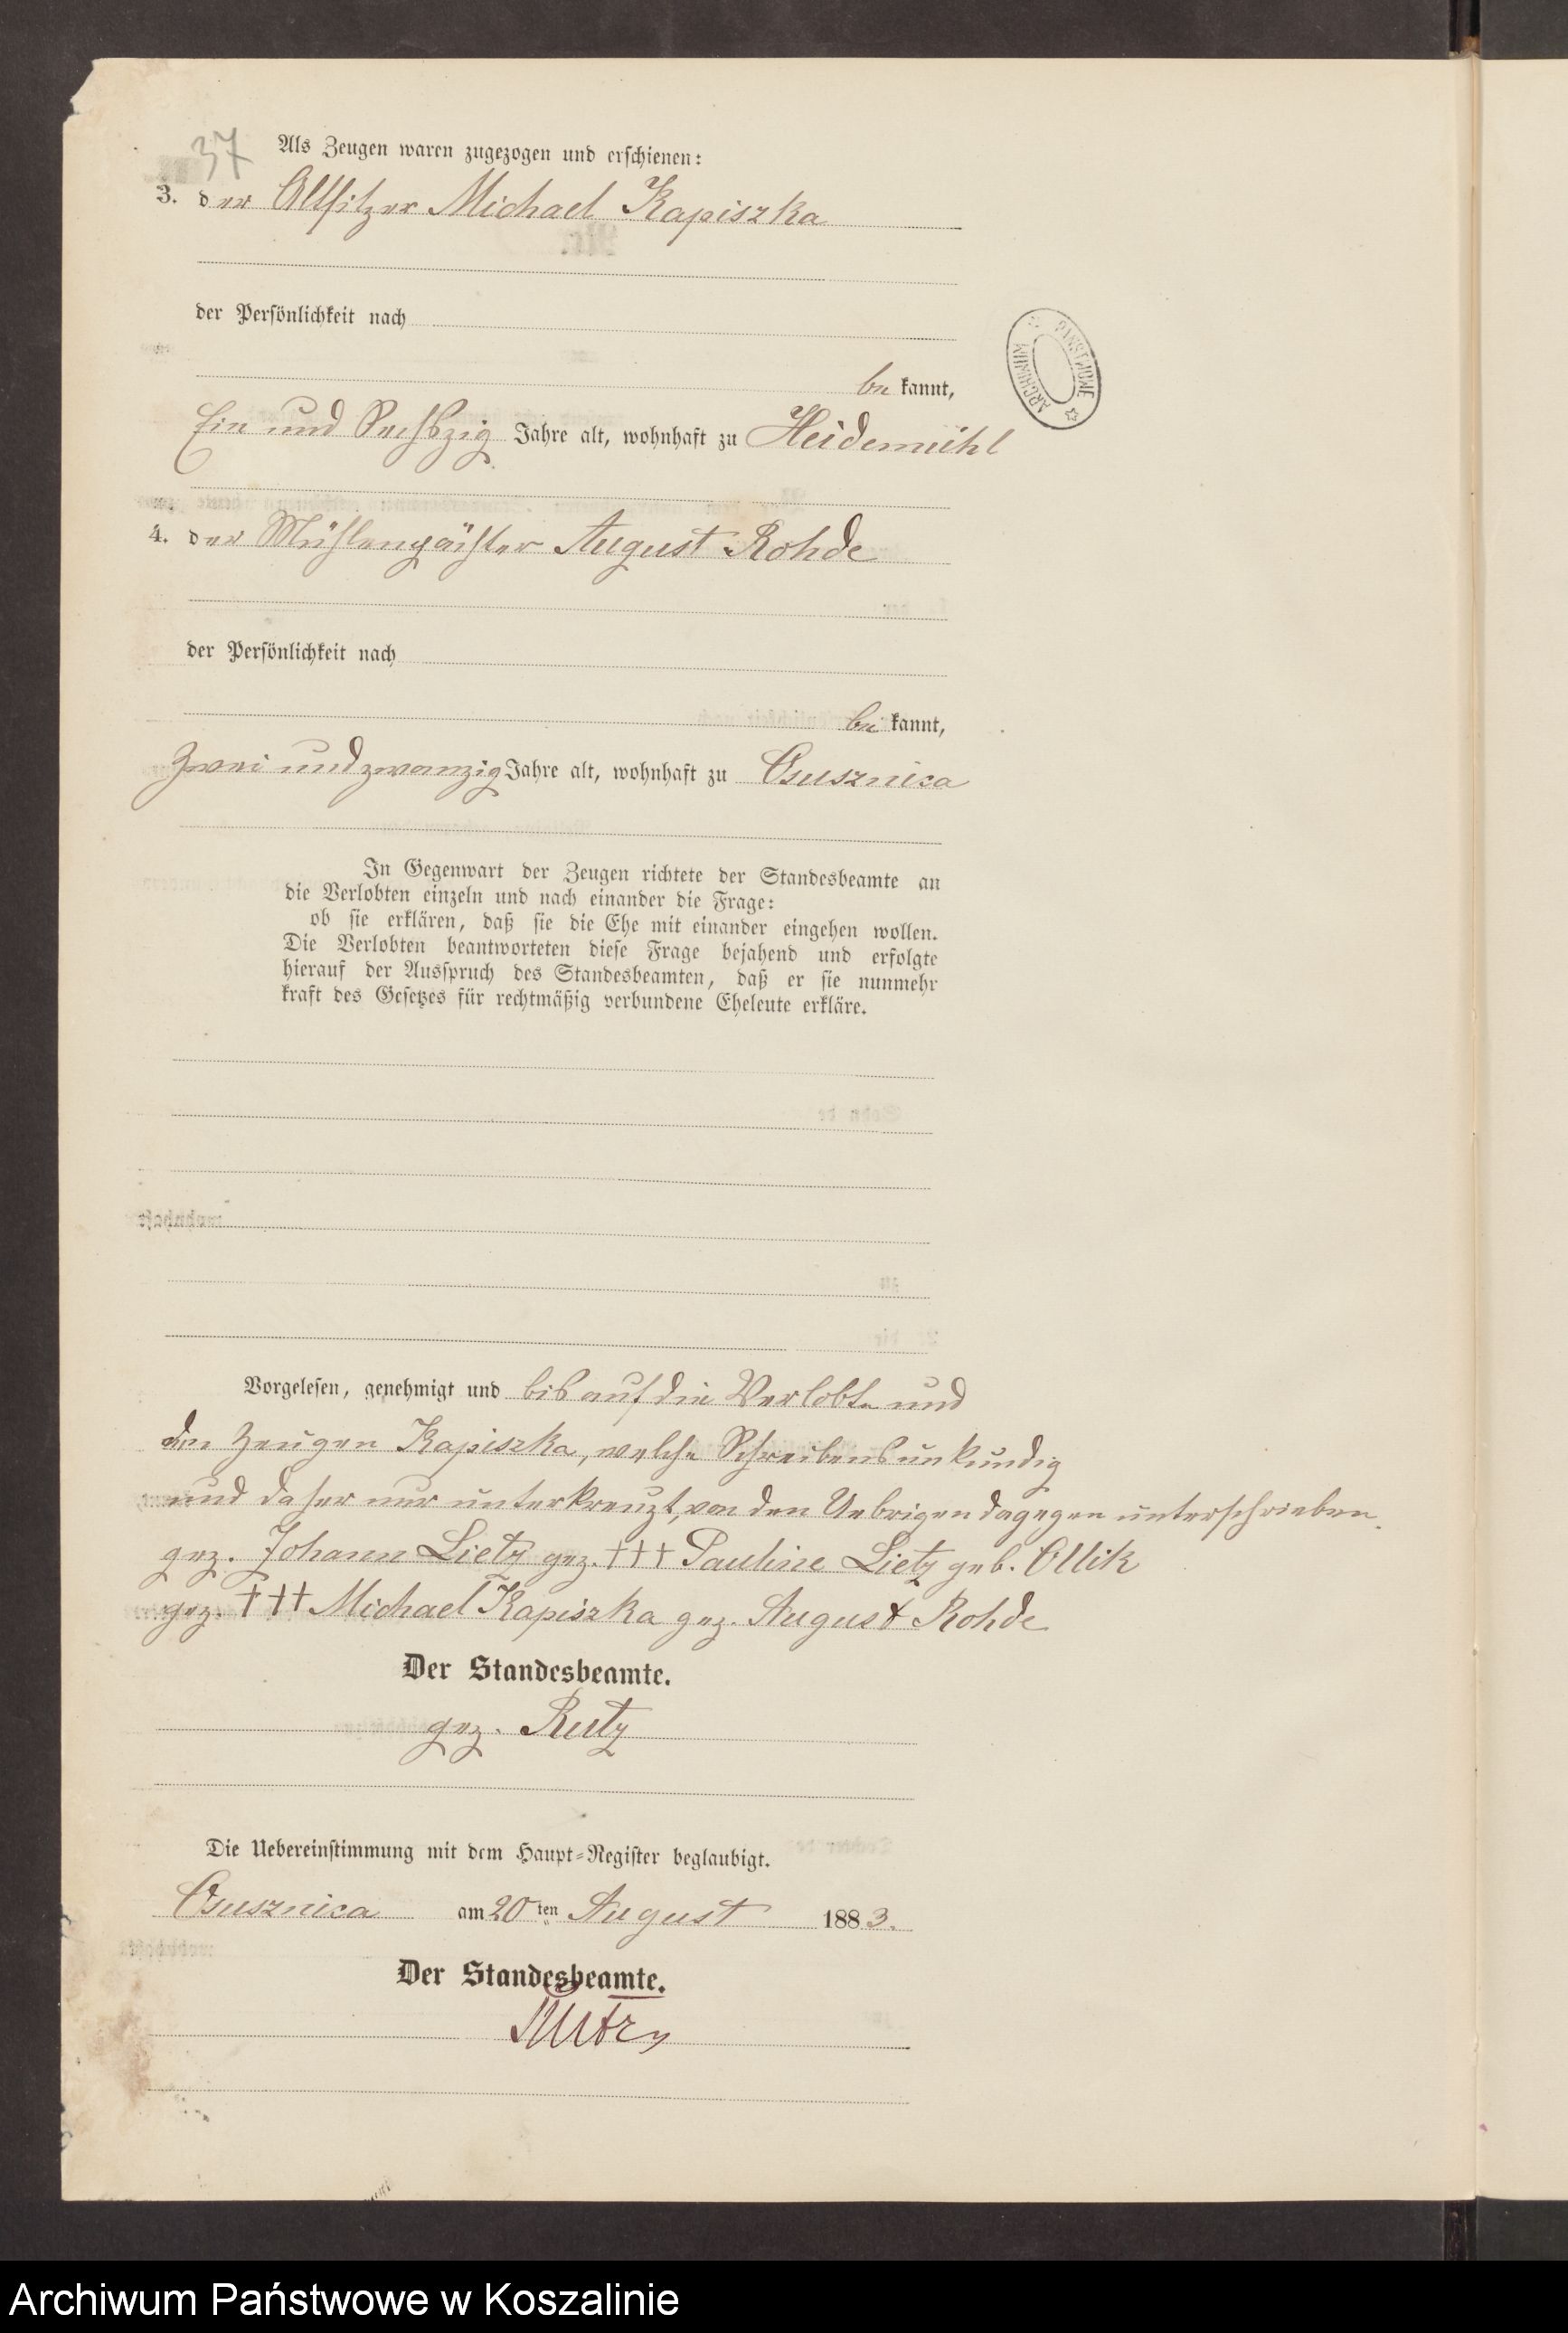 37
Als Zeugen waren zugezogen und erschienen:
3. der Altsitzer Michael Kapiszka
der Persönlichkeit nach
be kannt,
Ein und Sechszig Jahre alt, wohnhaft zu Heidemühl
4. der Mühlenpächter August Rohde
der Persönlichkeit nach
be kannt,
Zwei und zwanzig Jahre alt, wohnhaft zu Ossusznica
In Gegenwart der Zeugen richtete der Standesbeamte an
die Verlobten einzeln und nach einander die Frage:
ob sie erklären, daß sie die Ehe mit einander eingehen wollen.
Die Verlobten beantworteten diese Frage bejahend und erfolgte
hierauf der Ausspruch des Standesbeamten, daß er sie nunmehr
kraft des Gesetzes für rechtmäßig verbundene Eheleute erkläre.
Vorgelesen, genehmigt und bis auf die Verlobte und
den Zeugen Kapiszka, welche Schreibensunkundig
und daher nur unterkreuzt, von den Uebrigen dagegen unterschrieben.
gez. Johann Lietz gez. +++ Pauline Lietz geb. Ollik
gez. +++ Michael Kapiszka gez. August Rohde
Der Standesbeamte.
gez. Rutz
Die Uebereinstimmung mit dem Haupt-Register beglaubigt.
Ossusznica am 20 ten August 1883.
Der Standesbeamte.
Rutz
ARCHIWUM PAŃSTWOWE
Archiwum Państwowe w Koszalinie